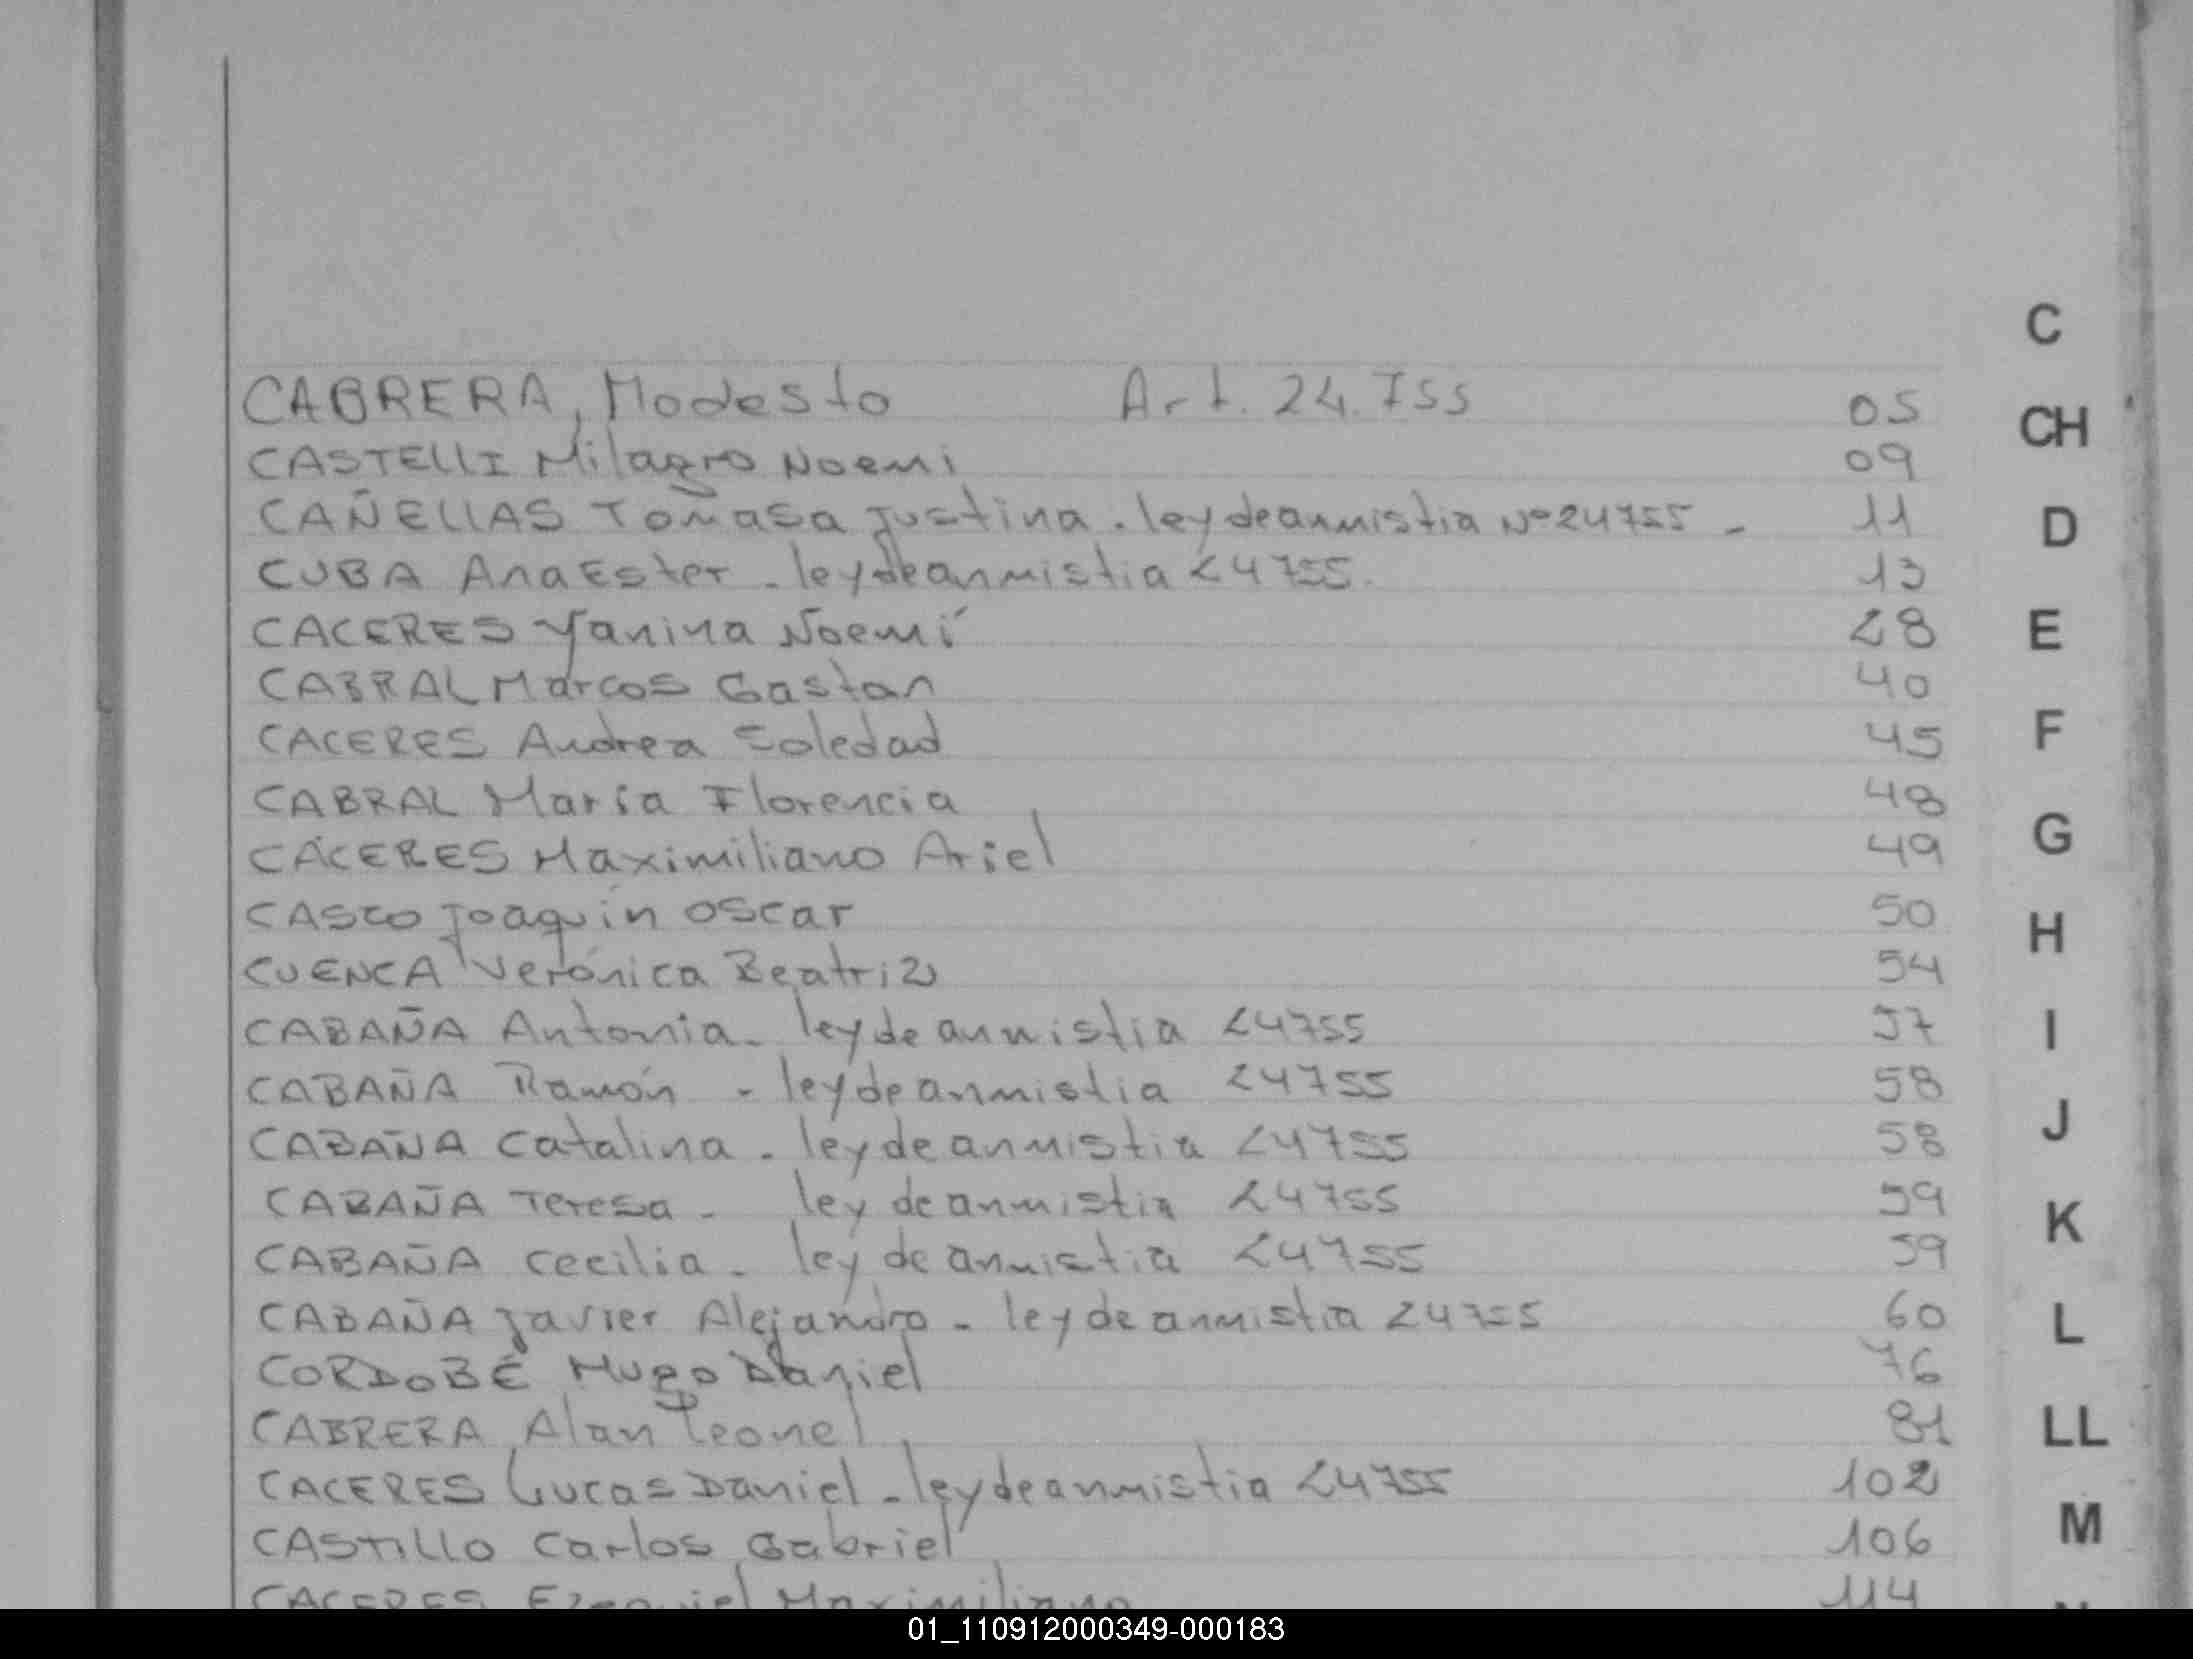 C
CABRERA, Modesto Art. 24.755 05
CH
CASTELLI Milagro Noemi 09
CAÑELLAS Tomasa Justina. ley de anmistia Nº 24755 - 11
D
CUBA Ana Ester - ley de anmistia 24755. 13
CACERES Yanina Noemí 28
E
CABRAL Marcos Gastan 40
CACERES Andrea Soledad 45
F
CABRAL María Florencia 48
CÁCERES Maximiliano Ariel 49
G
CASCO Joaquín Oscar 50
H
CUENCA Verónica Beatriz 54
CABAÑA Antonia - ley de anmistia 24755 57
I
CABAÑA Ramón - ley de anmistia 24755 58
CABAÑA Catalina - ley de anmistia 24755 58
J
CABAÑA Teresa - ley de anmistia 24755 59
K
CABAÑA Cecilia - ley de anmistia 24755 59
CABAÑA Javier Alejandro - ley de anmistia 24755 60
L
CORDOBÉ Hugo Daniel 76
CABRERA Alan Leonel 81
LL
CACERES Lucas Daniel - ley de anmistia 24755 102
M
CASTILLO Carlos Gabriel 106
CACERES Ezequiel Maximiliano 114
01_110912000349-000183